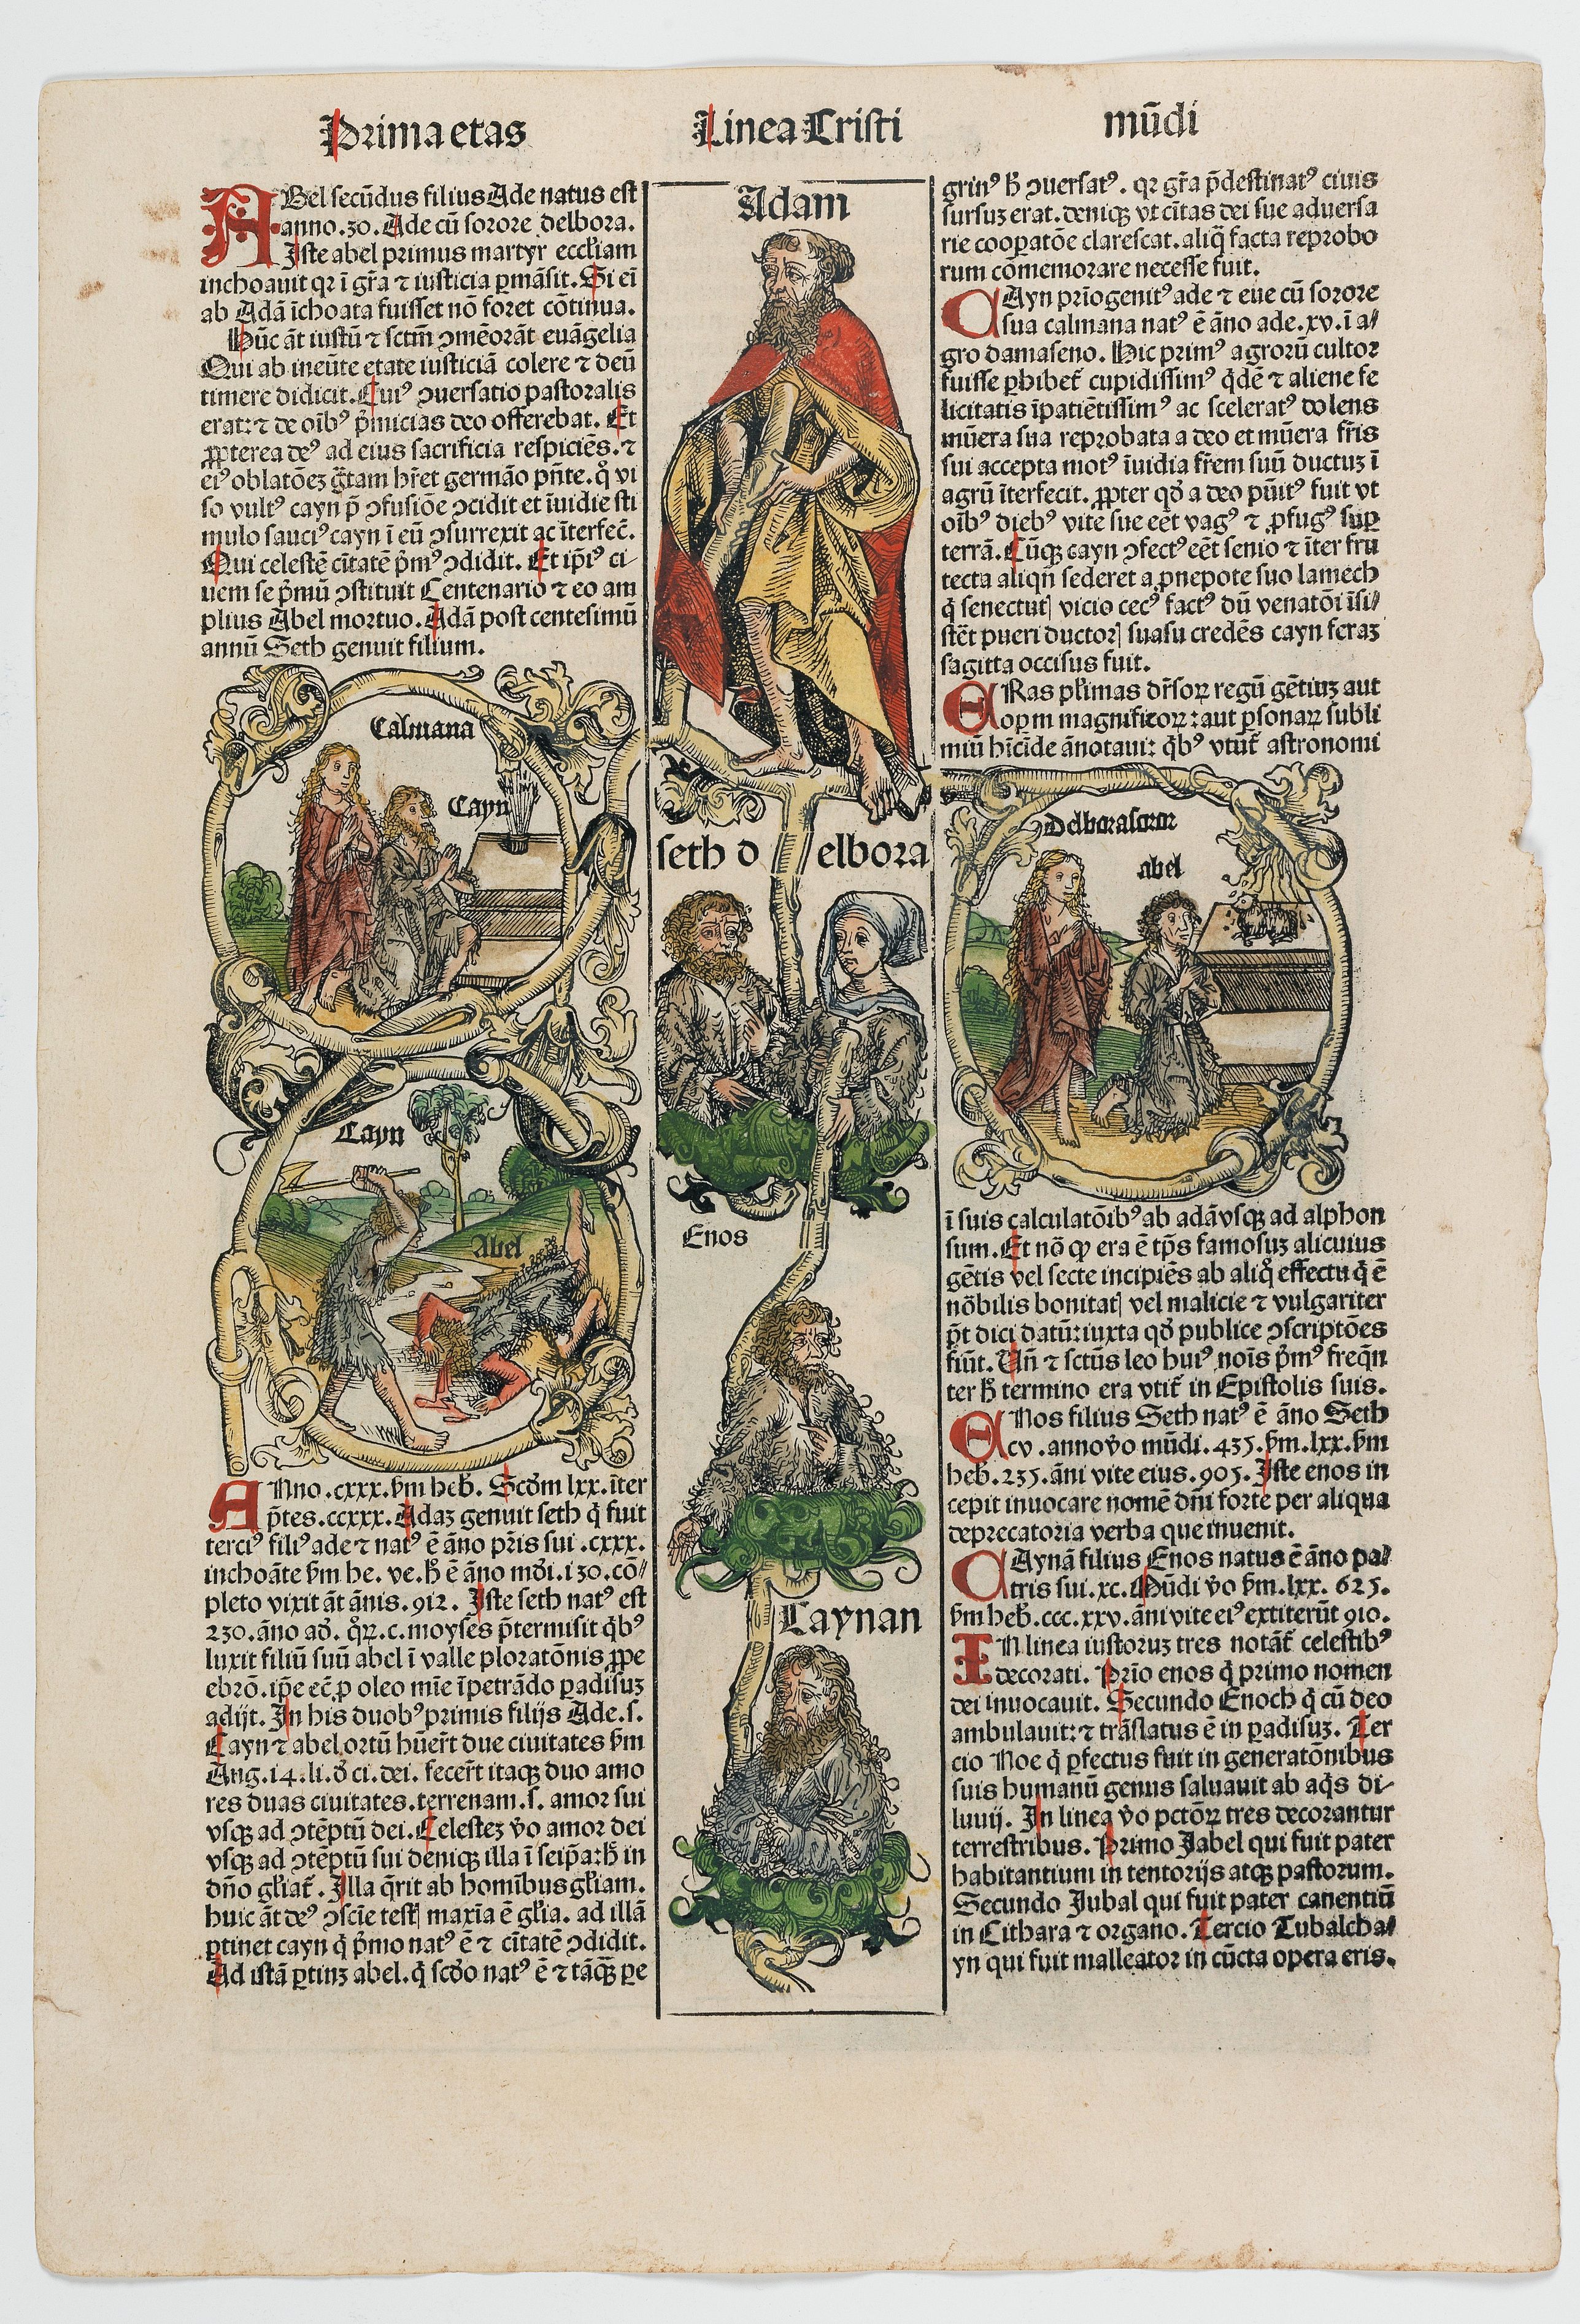 Prima etas
Linea Cristi
mūdi
ABel secūdus filius Ade natus est
anno .30. Ade cū sorore delbora.
Iste abel primus martyr eccl'iam
inchoauit qꝛ ī gr̄a ⁊ iusticia ꝑmāsit. Si eī
ab Adā īchoata fuisset nō foret cōtinua.
Hūc āt iustū ⁊ sctm̄ ꝯmēorāt euāgelia
Qui ab ineūte etate iusticiā colere ⁊ deū
timere didicit. Cuiꝰ ꝯuersatio pastoralis
erat: ⁊ de oībꝰ p̄micias deo offerebat. Et
ꝓpterea deꝰ ad eius sacrificia respiciēs. ⁊
eiꝰ oblatōeꝫ gr̄tam hr̄et germāo pn̄te. qͦ vi
so vultꝰ cayn p̄ ꝯfusiōe ꝯcidit et īuidie sti
mulo sauciꝰ cayn ī eū ꝯsurrexit ac īterfec̄.
Qui celestē cītatē p̄mꝰ ꝯdidit. Et ip̄iꝰ ci-
uem se p̄mū ꝯstituit Centenario ⁊ eo am
plius Abel mortuo. Adā post centesimū
annū Seth genuit filium.
Calmana
Cayn
Cayn
Abel
ANno .cxxx. ẜm heb̄. Scd̄m lxx. īter
p̄tes .ccxxx. Adaꝫ genuit seth q̇ fuit
terciꝰ filiꝰ ade ⁊ natꝰ ē āno pr̄is sui .cxxx.
inchoāte ẜm he. ve. h̄ ē āno mūdi. 130. cō-
pleto vixit āt ānis. 912. Iste seth natꝰ est
230. āno ad̄. qͦꝝ .c. moyses p̄termisit q̇bꝰ
luxit filiū suū abel ī valle ploratōnis ꝓpe
ebrō. ip̄e ec̄ ꝓ oleo mīe īpetrādo ꝑadisuꝫ
adijt. In his duobꝰ primis filijs Ade .s.
Cayn ⁊ abel ortū hūer̄t due ciuitates ẜm
Aug. 14. li. d̄ ci. dei. fecer̄t itaqꝫ duo amo
res duas ciuitates. terrenam .s. amor sui
vsqꝫ ad ꝯtēptū dei. Celesteꝫ v̄o amor dei
vsqꝫ ad ꝯtēptū sui deniqꝫ illa ī seip̄a: h̄ in
dn̄o gl'iat̄. Illa q̄rit ab homībus gl'iam.
huic āt deꝰ ꝯsciē testꝭ maxīa ē gl'ia. ad illā
ꝑtinet cayn q̇ p̄mo natꝰ ē ⁊ cītatē ꝯdidit.
Ad istā ꝑtinꝫ abel. q̇ scd̄o natꝰ ē ⁊ tāqꝫ ꝑe
Adam
seth d elbora
Enos
Caynan
grinꝰ h̄ ꝯuersatꝰ. qꝛ gr̄a p̄destinatꝰ ciuis
sursuꝫ erat. deniqꝫ vt cītas dei sue aduersa
rie cooꝑatōe clarescat. aliq̄ facta reprobo
rum cōmemorare necesse fuit.
CAyn prīogenitꝰ ade ⁊ eue cū sorore
sua calmana natꝰ ē āno ade .xv. ī a-
gro damaseno. Hic primꝰ agrorū cultor
fuisse ꝑhibet̄ cupidissimꝰ q̇dē ⁊ aliene fe
licitatis īpatiētissimꝰ ac sceleratꝰ dolens
mūera sua reprobata a deo et mūera fr̄is
sui accepta motꝰ īuidia fr̄em suū ductuꝫ ī
agrū īterfecit. ꝓpter qd̄ a deo pūitꝰ fuit vt
oībꝰ diebꝰ vite sue eēt vagꝰ ⁊ ꝓfugꝰ suꝑ
terrā. Cūqꝫ cayn ꝯfectꝰ eēt senio ⁊ īter fru
tecta aliqn̄ sederet a ꝓnepote suo lamech
q̇ senectutꝭ vicio cecꝰ factꝰ dū venatōi īsi-
stēt pueri ductorꝭ suasu credēs cayn feraꝫ
sagitta occisus fuit.
ERas pl'imas dr̄soꝝ regū gētiuꝫ aut
opm magnificoꝝ: aut ꝑsonaꝝ subli
miū hīcīde ānotaui: q̇bꝰ vtūt̄ astronomi
Delborasoror
abel
ī suis calculatōibꝰ ab adā vsqꝫ ad alphon
sum. Et nō ꝙ era ē tp̄s famosuꝫ alicuius
gētis vel secte incipiēs ab aliqͦ effectu q̇ ē
nōbilis bonitatꝭ vel malicie ⁊ vulgariter
p̄t dici datū: iuxta qd̄ publice ꝯscriptōes
fiūt. Vn̄ ⁊ sctūs leo huiꝰ noīs p̄mꝰ freq̄n
ter h̄ termino era vtit̄ in Epistolis suis.
ENos filius Seth natꝰ ē āno Seth
cv. anno v̄o mūdi. 435. ẜm .lxx. ẜm
heb̄. 235. āni vite eius. 905. Iste enos in
cepit inuocare nomē dn̄i forte per aliqua
deprecatoria verba que inuenit.
CAynā filius Enos natus ē āno pa-
tris sui .xc. Mūdi v̄o ẜm .lxx. 625.
ẜm heb̄. ccc.xxv. āni vite eiꝰ extiterūt 910.
IN linea iustoruꝫ tres notāt̄ celestibꝰ
decorati. Prīo enos q̇ primo nomen
dei inuocauit. Secundo Enoch q̇ cū deo
ambulauit: ⁊ trāslatus ē in ꝑadisuꝫ. Ter
cio Noe q̇ ꝑfectus fuit in generatōnibus
suis humanū genus saluauit ab aq̇s di-
luuij. In linea v̄o pctōꝝ tres decorantur
terrestribus. Primo Jabel qui fuit pater
habitantium in tentorijs atqꝫ pastorum.
Secundo Jubal qui fuit pater canentiū
in Cithara ⁊ organo. Tercio Tubalcha-
yn qui fuit malleator in cūcta opera eris.